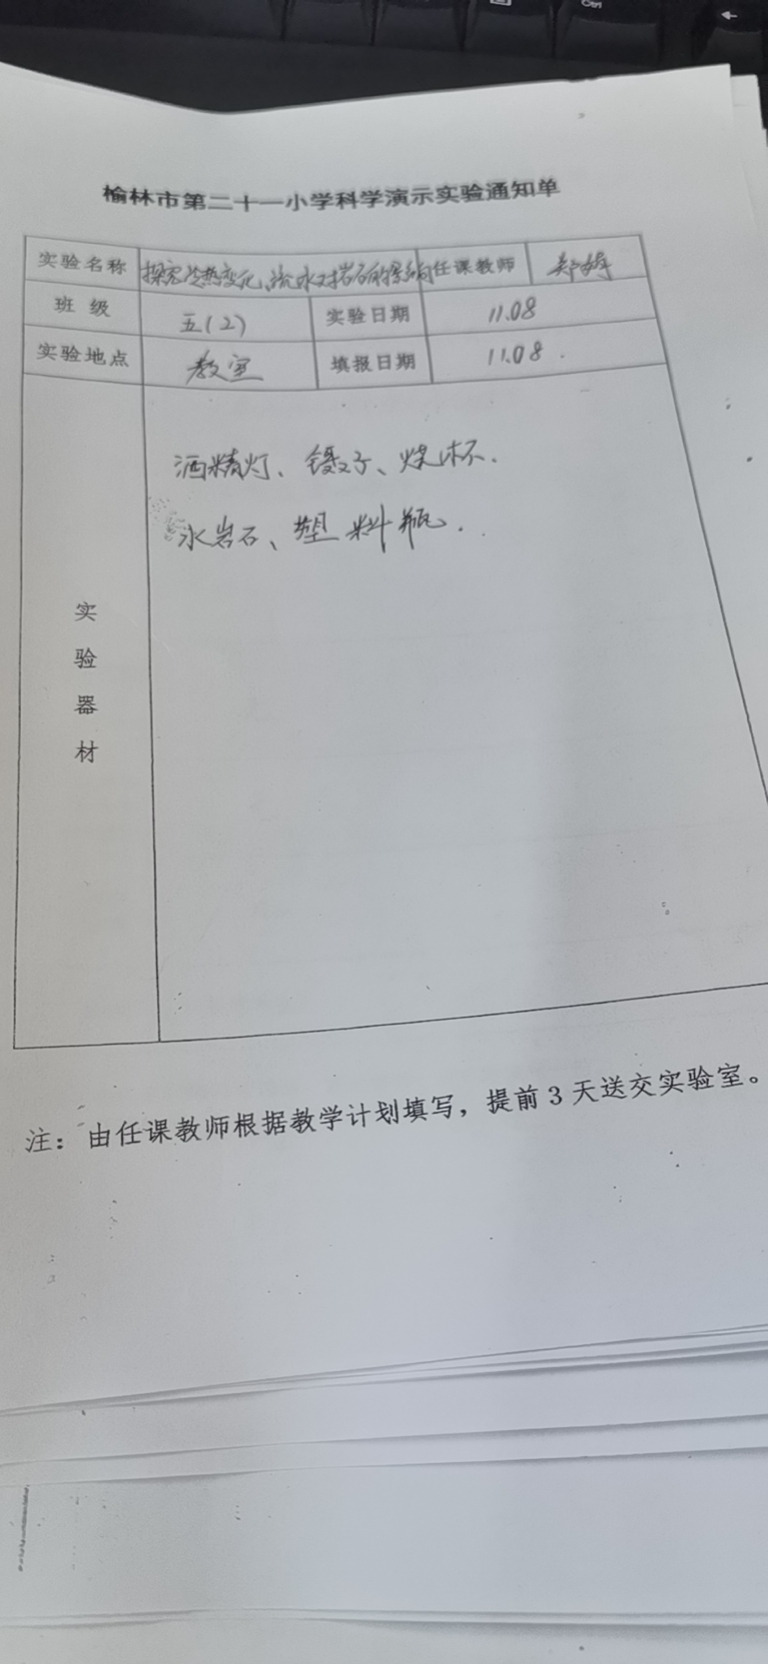 榆林市第二十一小学科学演示实验通知单
实验名称 探究冷热变化、流水对岩石的影响 任课教师 郑婷
班 级 五(2) 实验日期 11.08
实验地点 教室 填报日期 11.08.
酒精灯、镊子、烧杯.
水岩石、塑料瓶.
实
验
器
材
注：由任课教师根据教学计划填写，提前3天送交实验室。
Ctrl